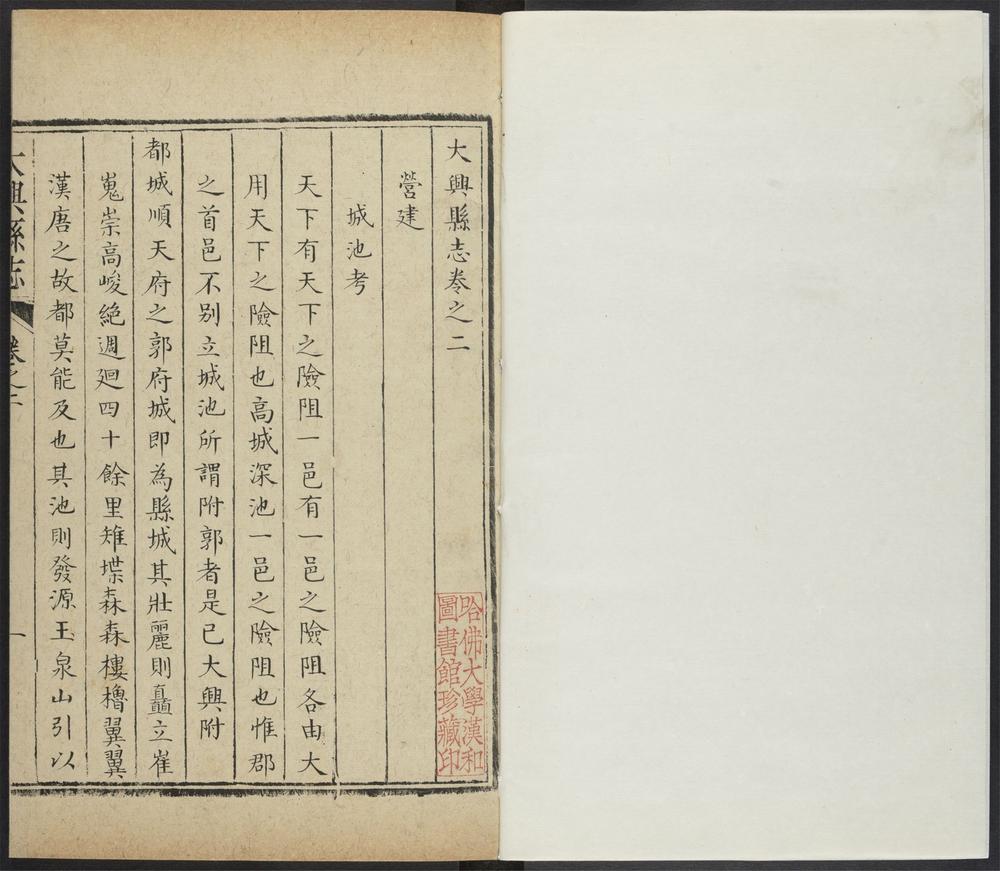 大興縣志卷之二
營建
城池考
天下有天下之險阻一邑有一邑之險阻各由大
用天下之險阻也高城深池一邑之險阻也惟郡
之首邑不别立城池所謂附郭者是已大興附
都城順天府之郭府城即為縣城其壯麗則矗立崔
嵬崇高峻絕週廻四十餘里雉堞森森樓櫓翼翼
漢唐之故都莫能及也其池則發源玉泉山引以
大興縣志 卷之二 一
哈佛大學漢和
圖書館珍藏印